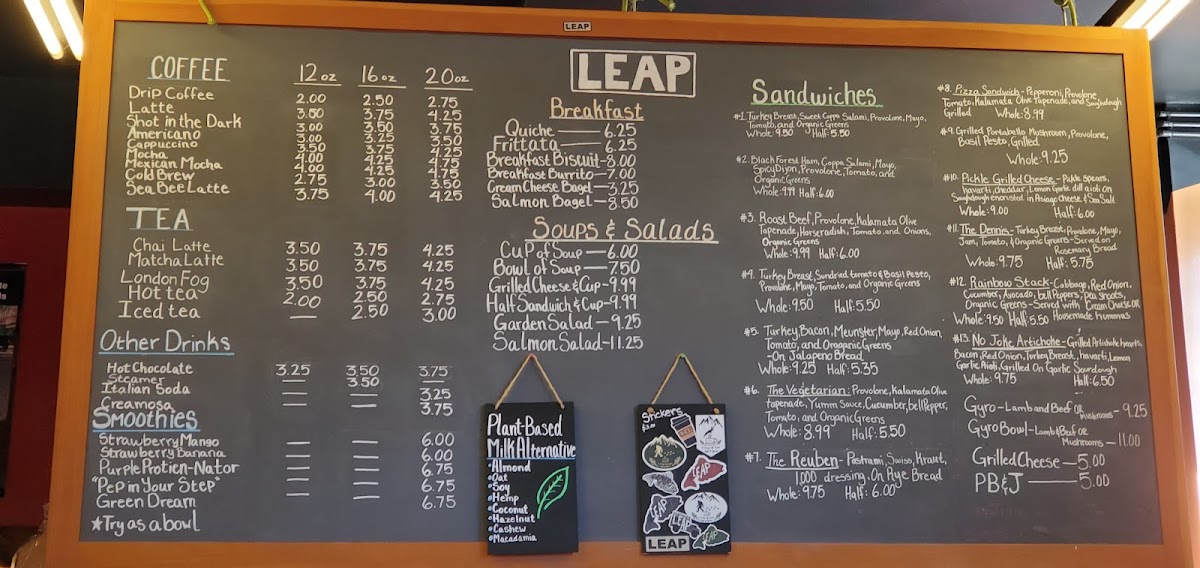 LEAP
LEAP
COFFEE 12oz 16oz 20oz
Drip Coffee 2.00 2.50 2.75
Latte 3.50 3.75 4.25
Shot in the Dark 3.00 3.50 3.75
Americano 3.00 3.25 3.50
Cappuccino 3.50 3.75 4.25
Mocha 4.00 4.25 4.75
Mexican Mocha 4.00 4.25 4.75
Cold Brew 2.75 3.00 3.50
Sea Bee Latte 3.75 4.00 4.25
TEA
Chai Latte 3.50 3.75 4.25
Matcha Latte 3.50 3.75 4.25
London Fog 3.50 3.75 4.25
Hot tea 2.00 2.50 2.75
Iced tea — 2.50 3.00
Other Drinks
Hot Chocolate 3.25 3.50 3.75
Steamer — 3.50 —
Italian Soda — — 3.25
Creamosa — — 3.75
Smoothies
Strawberry Mango — — 6.00
Strawberry Banana — — 6.00
Purple Protien-Nator — — 6.75
"Pep in Your Step" — — 6.75
Green Dream — — 6.75
★Try as a bowl
Breakfast
Quiche — 6.25
Frittata — 6.25
Breakfast Biscuit-8.00
Breakfast Burrito-7.00
Cream Cheese Bagel-3.25
Salmon Bagel-8.50
Soups & Salads
Cup of Soup — 6.00
Bowl of Soup — 7.50
Grilled Cheese & Cup-9.99
Half Sandwich & Cup-9.99
Garden Salad — 9.25
Salmon Salad-11.25
Plant-Based
Milk Alternative
•Almond
•Oat
•Soy
•Hemp
•Coconut
•Hazelnut
•Cashew
•Macadamia
Stickers
LEAP
LEAP
LEAP
LEAP
LEAP
Sandwiches
#1. Turkey Breast, Sweet Coppa Salami, Provolone, Mayo,
Tomato, and Organic Greens
Whole: 9.50 Half: 5.50
#2. Black Forest Ham, Coppa Salami, Mayo,
Spicy Dijon, Provolone, Tomato, and
Organic Greens
Whole: 9.99 Half: 6.00
#3. Roast Beef, Provolone, Kalamata Olive
Tapenade, Horseradish, Tomato, and Onions,
Organic Greens
Whole: 9.99 Half: 6.00
#4. Turkey Breast, Sundried tomato & Basil Pesto,
Provolone, Mayo, Tomato, and Organic Greens
Whole: 9.50 Half: 5.50
#5. Turkey, Bacon, Meunster, Mayo, Red Onion,
Tomato, and Oraganic Greens
-On Jalapeno Bread
Whole: 9.25 Half: 5.35
#6. The Vegetarian: Provolone, Kalamata Olive
Tapenade, Yumm Sauce, Cucumber, bell Pepper,
Tomato, and Organic Greens
Whole: 8.99 Half: 5.50
#7. The Reuben- Pastrami, Swiss, Kraut,
1,000 dressing. On Rye Bread
Whole: 9.75 Half: 6.00
#8. Pizza Sandwich- Pepperoni, Provolone,
Tomato, Kalamata Olive Tapenade, and Sourdough
Grilled Whole: 8.99
#9. Grilled Portabello Mushroom, Provolone,
Basil Pesto, Grilled
Whole: 9.25
#10. Pickle Grilled Cheese- Pickle spears,
havarti, cheddar, Lemon Garlic dill aioli on
Sourdough encrusted in Asiago Cheese & Sea Salt
Whole: 9.00 Half: 6.00
#11. The Dennis- Turkey Breast, Provolone, Mayo,
Jam, Tomato, & Organic Greens-Served on
Rosemary Bread
Whole: 9.75 Half: 5.75
#12. Rainbow Stack-Cabbage, Red Onion,
Cucumber, Avocado, bell Peppers, pea shoots,
Organic Greens-Served with Cream Cheese OR
Whole: 9.50 Half: 5.50 Horsemade hummas
#13. No Joke Artichoke-Grilled Artichoke hearts,
Bacon, Red Onion, Turkey Breast, havarti, Lemon
Garlic Aioli, Grilled On Garlic Sourdough
Whole: 9.75 Half: 6.50
Gyro-Lamb and Beef OR Mushrooms - 9.25
Gyro Bowl-Lamb & Beef OR
Mushrooms — 11.00
Grilled Cheese — 5.00
PB&J — 5.00